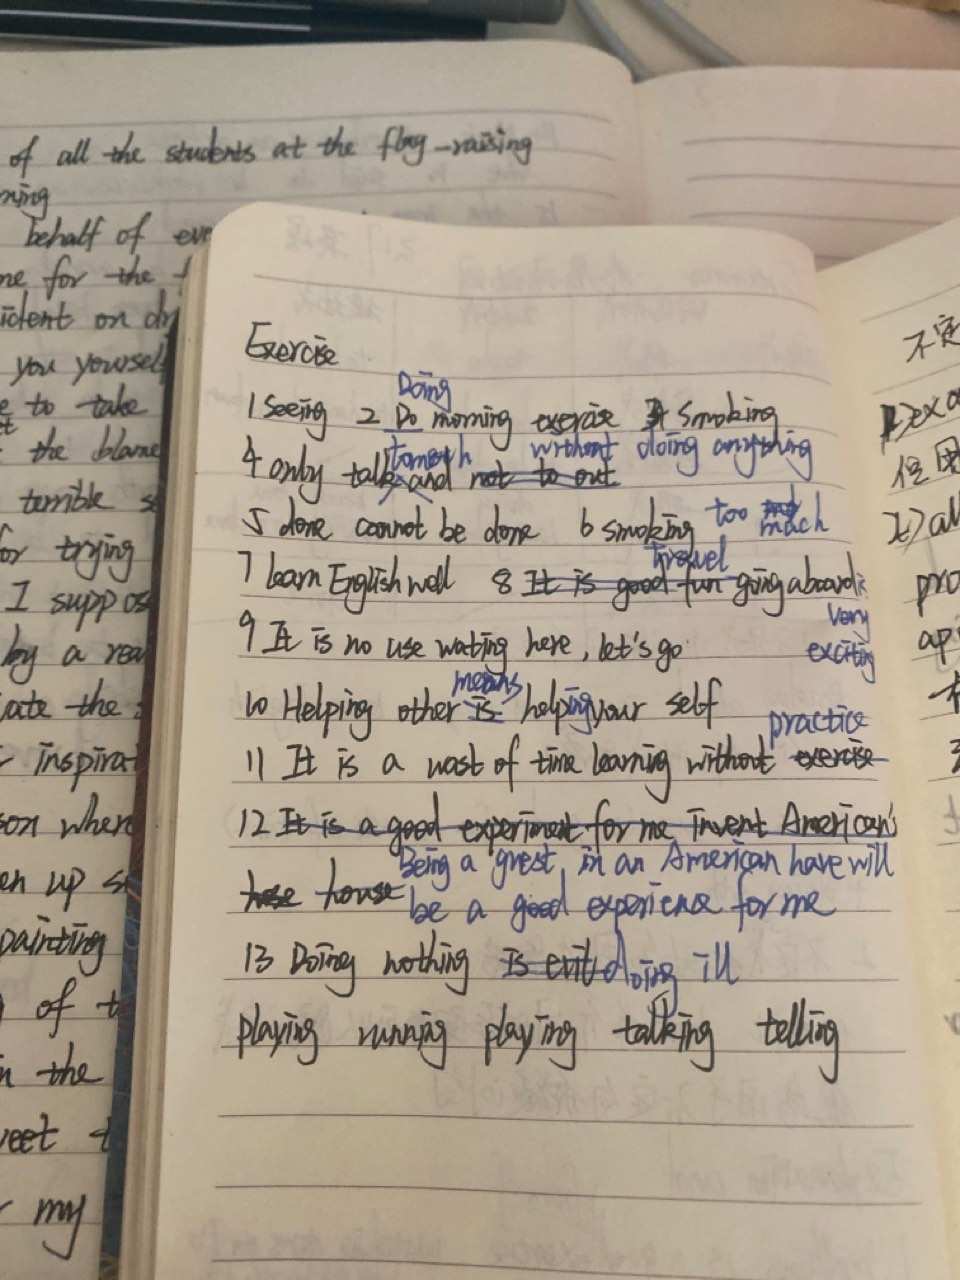 of all the students at the flag-raising
ning
behalf of eve
me for the
ident on dr
you yourself
e to take
the blame
terrible s
for trying
I suppos
by a rea
cate the
inspirat
son where
en up s
painting
of t
n the
veet t
my
Exercise
Doing
1 Seeing 2 Do morning exercise 3 smoking
without doing anything
4 only talk and not to out
too much
5 done cannot be done 6 smoking
7 learn English well 8 It is good fun going aboard is
very
9 It is no use wating here, let's go exciting
means
10 Helping other is helping your self
practice
11 It is a wast of time learning without exercise
12 It is a good experiment for me invent American's
Being a grest in an American have will
house be a good experience for me
13 Doing nothing is evil doing ill
playing running playing talking telling
不定
1) exa
但因
2) all
pro